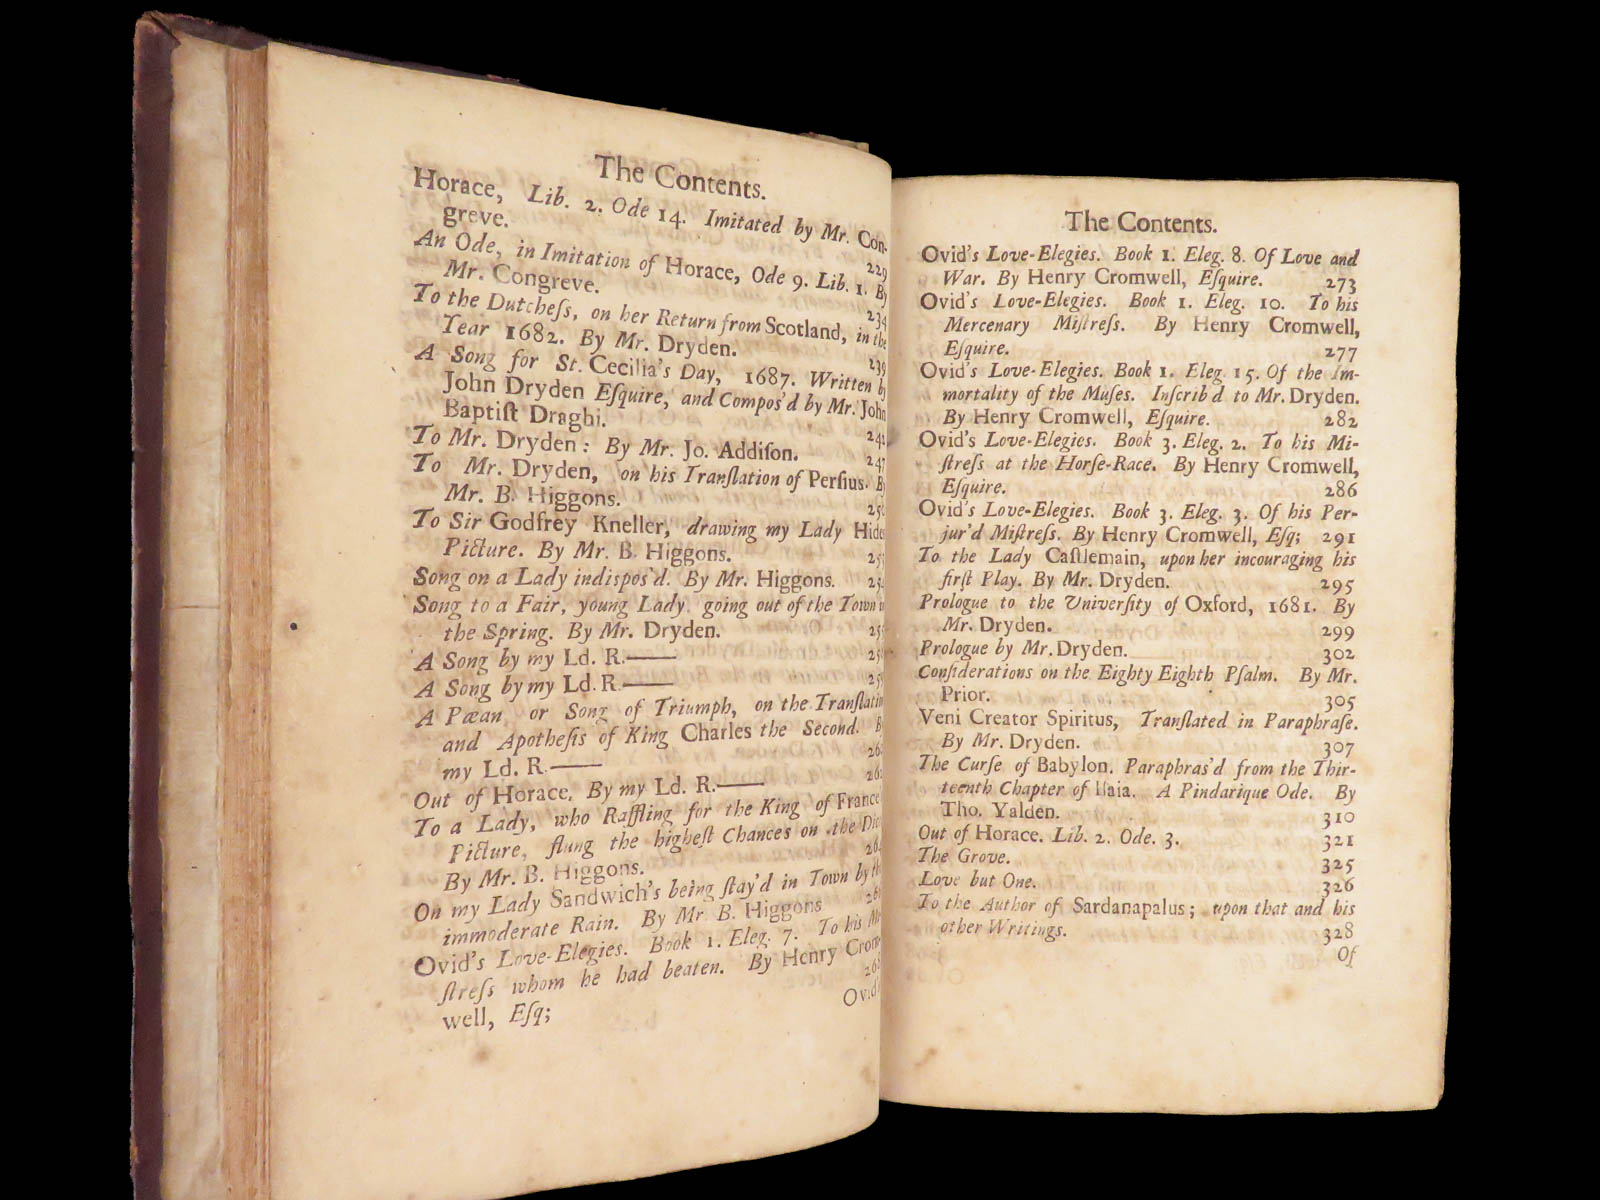 The Contents.
Horace, Lib. 2. Ode 14. Imitated by Mr. Con-
greve. 229
An Ode, in Imitation of Horace, Ode 9. Lib. 1. By
Mr. Congreve. 234
To the Dutcheſs, on her Return from Scotland, in the
Year 1682. By Mr. Dryden. 239
A Song for St. Cecilia's Day, 1687. Written by
John Dryden Eſquire, and Compos'd by Mr. John
Baptiſt Draghi. 242
To Mr. Dryden: By Mr. Jo. Addiſon. 247
To Mr. Dryden, on his Tranſlation of Perſius. By
Mr. B. Higgons.
To Sir Godfrey Kneller, drawing my Lady Hides
Picture. By Mr. B. Higgons.
Song on a Lady indispos'd. By Mr. Higgons.
Song to a Fair, young Lady going out of the Town in
the Spring. By Mr. Dryden.
A Song by my Ld. R.——
A Song by my Ld. R.——
A Pæan or Song of Triumph, on the Tranſlation
and Apotheſis of King Charles the Second. By
my Ld. R.——
Out of Horace, By my Ld. R.——
To a Lady, who Raffling for the King of France
Picture, flung the higheſt Chances on the Dice
By Mr. B. Higgons.
On my Lady Sandwich's being ſtay'd in Town by the
immoderate Rain. By Mr B. Higgons
Ovid's Love-Elegies. Book 1. Eleg. 7. To his Mi-
ſtreſs whom he had beaten. By Henry Crom-
well, Eſq; 268
Ovid's
The Contents.
Ovid's Love-Elegies. Book 1. Eleg. 8. Of Love and
War. By Henry Cromwell, Eſquire. 273
Ovid's Love-Elegies. Book 1. Eleg. 10. To his
Mercenary Miſtreſs. By Henry Cromwell,
Eſquire. 277
Ovid's Love-Elegies. Book 1. Eleg 15. Of the Im-
mortality of the Muſes. Inſcrib'd to Mr. Dryden.
By Henry Cromwell, Eſquire. 282
Ovid's Love-Elegies. Book 3. Eleg. 2. To his Mi-
ſtreſs at the Horſe-Race. By Henry Cromwell,
Eſquire. 286
Ovid's Love-Elegies. Book 3. Eleg. 3. Of his Per-
jur'd Miſtreſs. By Henry Cromwell, Eſq; 291
To the Lady Caſtlemain, upon her incouraging his
firſt Play. By Mr. Dryden. 295
Prologue to the Univerſity of Oxford, 1681. By
Mr. Dryden. 299
Prologue by Mr. Dryden. 302
Conſiderations on the Eighty Eighth Pſalm. By Mr.
Prior. 305
Veni Creator Spiritus, Tranſlated in Paraphraſe.
By Mr. Dryden. 307
The Curſe of Babylon. Paraphras'd from the Thir-
teenth Chapter of Iſaia. A Pindarique Ode. By
Tho. Yalden. 310
Out of Horace. Lib. 2. Ode. 3. 321
The Grove. 325
Love but One. 326
To the Author of Sardanapalus; upon that and his
other Writings. 328
Of